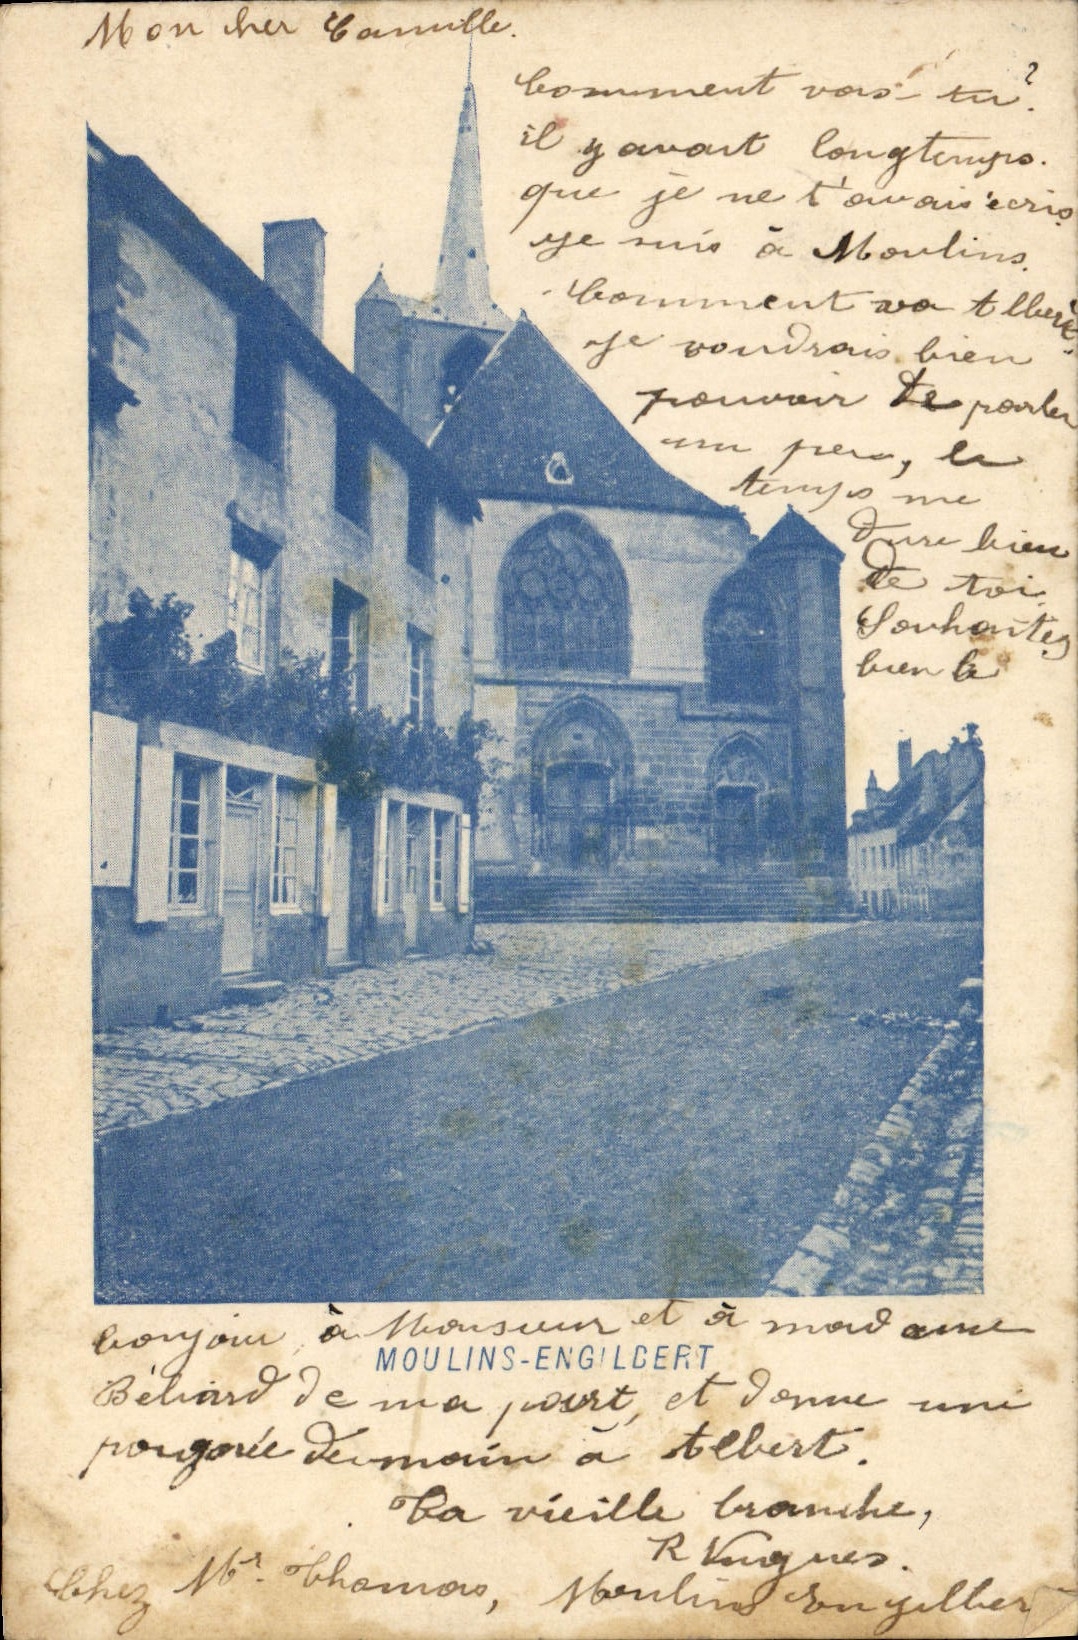 Mon cher Camille.
Comment vas-tu?
il y avait longtemps.
que je ne t'avais écris,
je suis à Moulins.
Comment va Albert.
je voudrais bien
pouvoir te parler
un peu, le
temps me
dure bien
de toi.
Souhaites
bien le
bonjour à Monsieur et à madame
MOULINS-ENGILBERT
Béliard de ma part, et donne une
poignée de main à Albert.
Ta vieille branche,
R
Chez Mr. Thomas, Moulins Engilbert